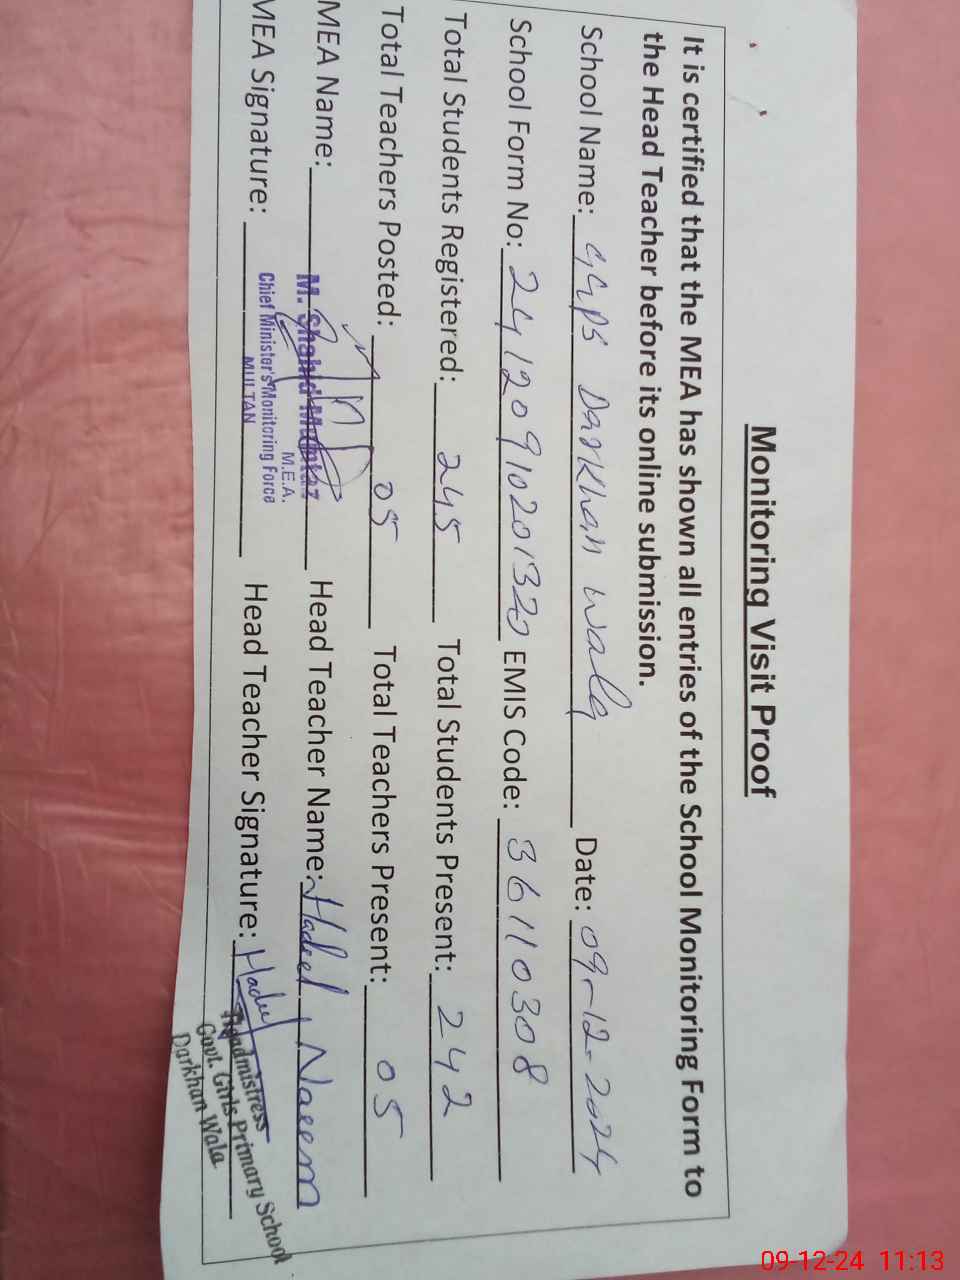 Monitoring Visit Proof
It is certified that the MEA has shown all entries of the School Monitoring Form to
the Head Teacher before its online submission.
School Name: GGPS Darkhan Wala Date: 09-12-2024
School Form No: 24120910201320 EMIS Code: 36110308
Total Students Registered: 245 Total Students Present: 242
Total Teachers Posted: 05 Total Teachers Present: 05
MEA Name: M. Shahid Head Teacher Name: Hadeel Naeem
M.E.A.
Chief Minister's Monitoring Force
MULTAN
MEA Signature: Head Teacher Signature:
Headmistress
Govt. Girls Primary School
Darkhan Wala
09-12-24 11:13